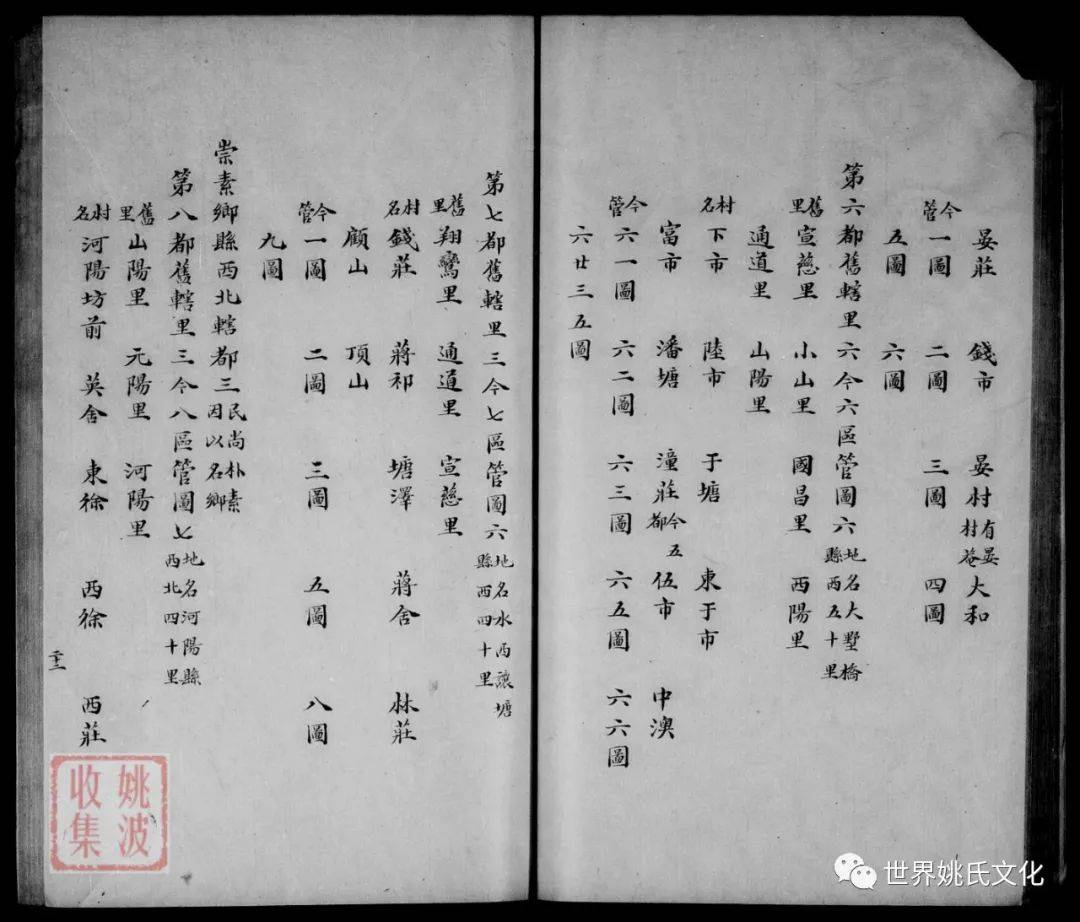 晏莊 錢市 晏村有晏村菴 大和
今管一圖 二圖 三圖 四圖
五圖 六圖
第六都舊轄里六今六區管圖六地名大墅橋縣西五十里
舊里宣慈里 小山里 國昌里 西陽里
通道里 山陽里
村名下市 陸市 于塘 東于市
富市 潘塘 潼莊今五都 伍市 中澳
今管六一圖 六二圖 六三圖 六五圖 六六圖
六廿三五圖
第七都舊轄里三今七區管圖六地名水西讓塘縣西四十里
舊里翔鸞里 通道里 宣慈里
村名錢莊 蔣祁 塘澤 蔣舍 林莊
顧山 頂山
今管一圖 二圖 三圖 五圖 八圖
九圖
崇素鄉縣西北轄都三民尚朴素因以名鄉
第八都舊轄里三今八區管圖七地名河陽縣西北四十里
舊里山陽里 元陽里 河陽里
村名河陽坊前 英舍 東徐 西徐 西莊
二十二
姚波收集
世界姚氏文化